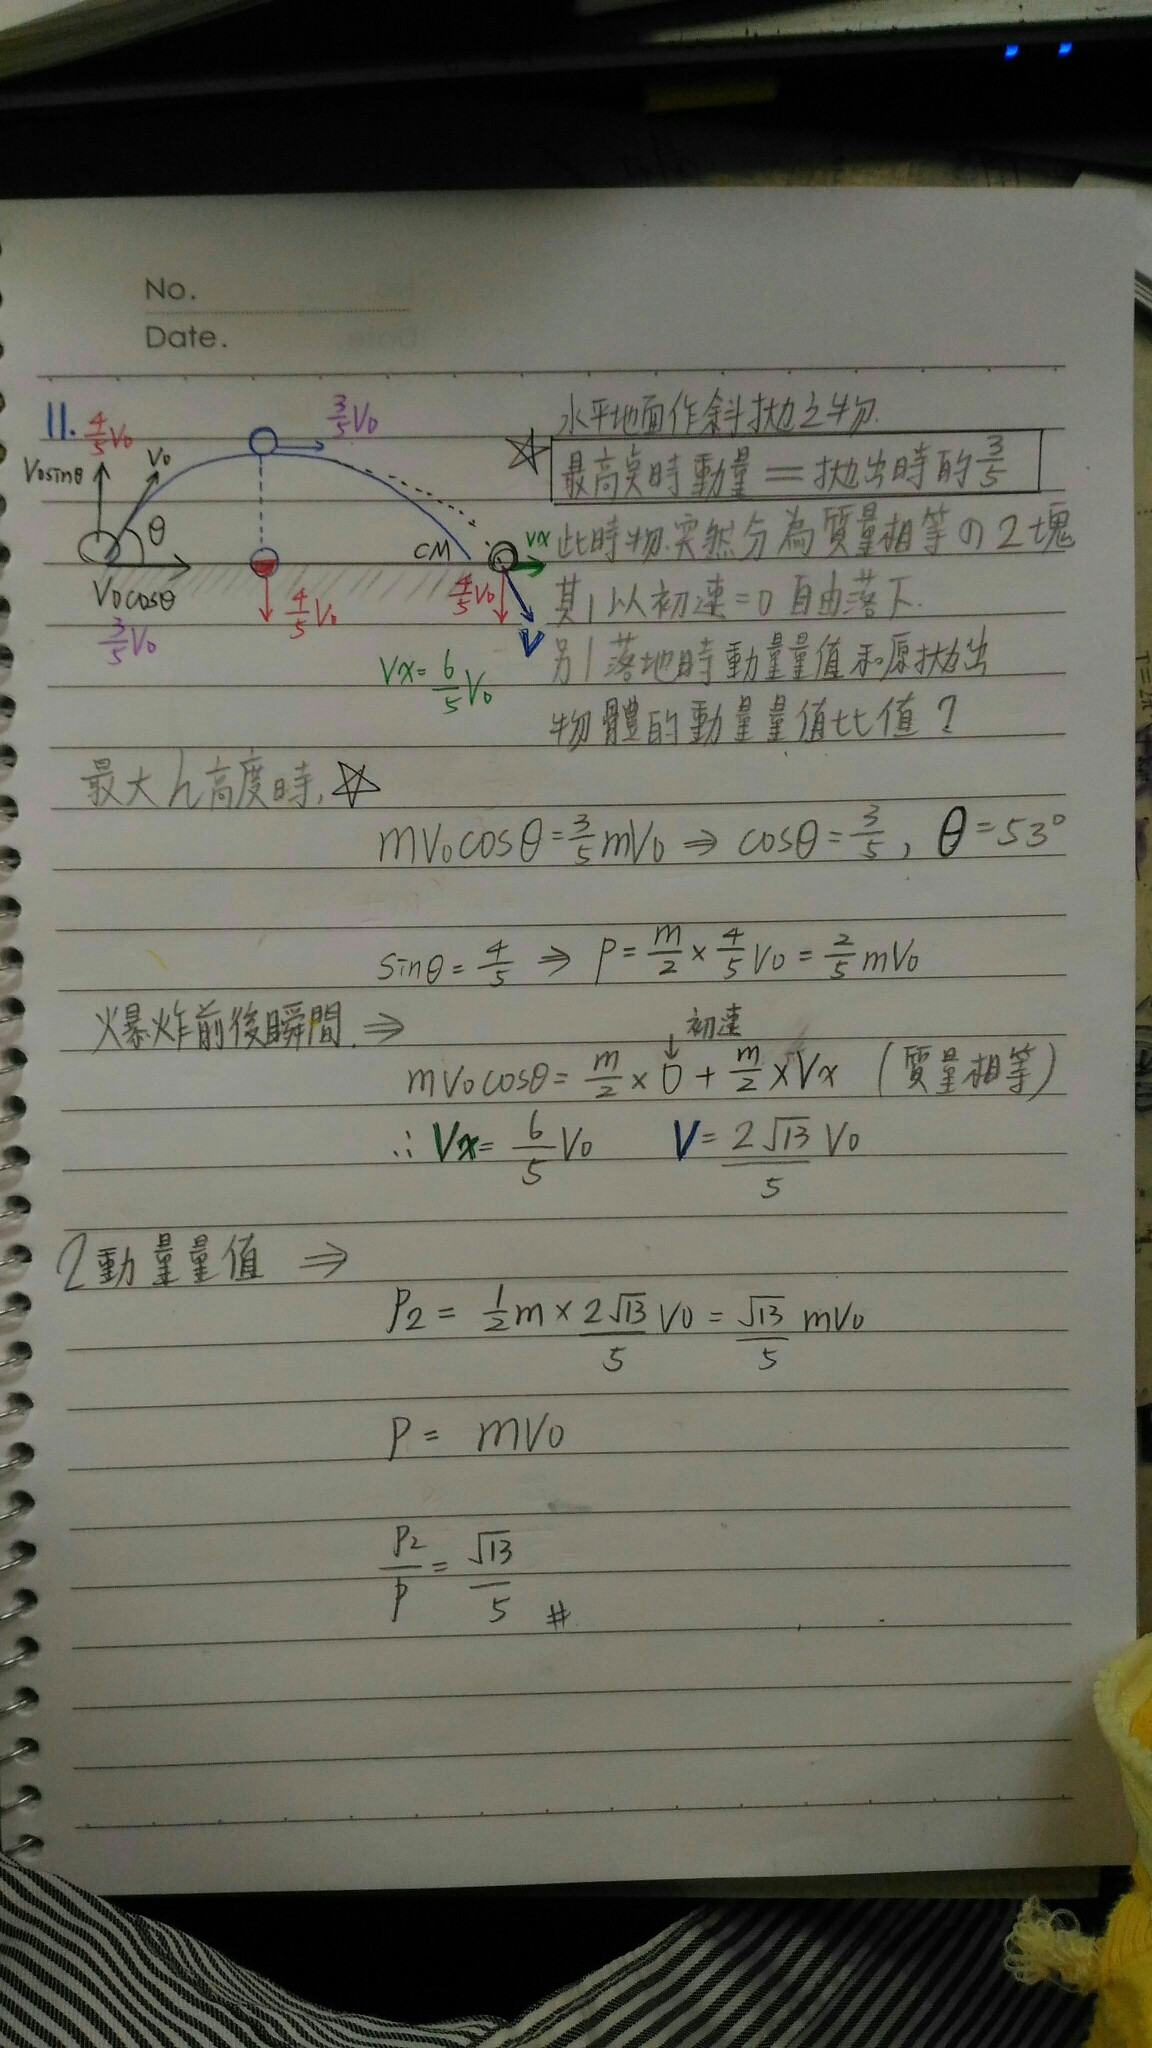 No.
Date.
11.
4/5 V0
V0sinθ
V0
θ
V0cosθ
3/5 V0
3/5 V0
4/5 V0
CM
4/5 V0
Vx
V
Vx = 6/5 V0
水平地面作斜拋之物.
☆ 最高點時動量 = 拋出時的 3/5
此時物突然分為質量相等の2塊
其1以初速=0自由落下.
另1落地時動量量值和原拋出
物體的動量量值比值?
最大h高度時, ☆
mV0cosθ = 3/5 mV0 ⇒ cosθ = 3/5, θ = 53°
sinθ = 4/5 ⇒ P = m/2 × 4/5 V0 = 2/5 mV0
爆炸前後瞬間. ⇒
初速
↓
mV0cosθ = m/2 × 0 + m/2 × Vx (質量相等)
∴ Vx = 6/5 V0 V = 2√13/5 V0
2動量量值 ⇒
P2 = 1/2 m × 2√13/5 V0 = √13/5 mV0
P = mV0
P2/P = √13/5 #